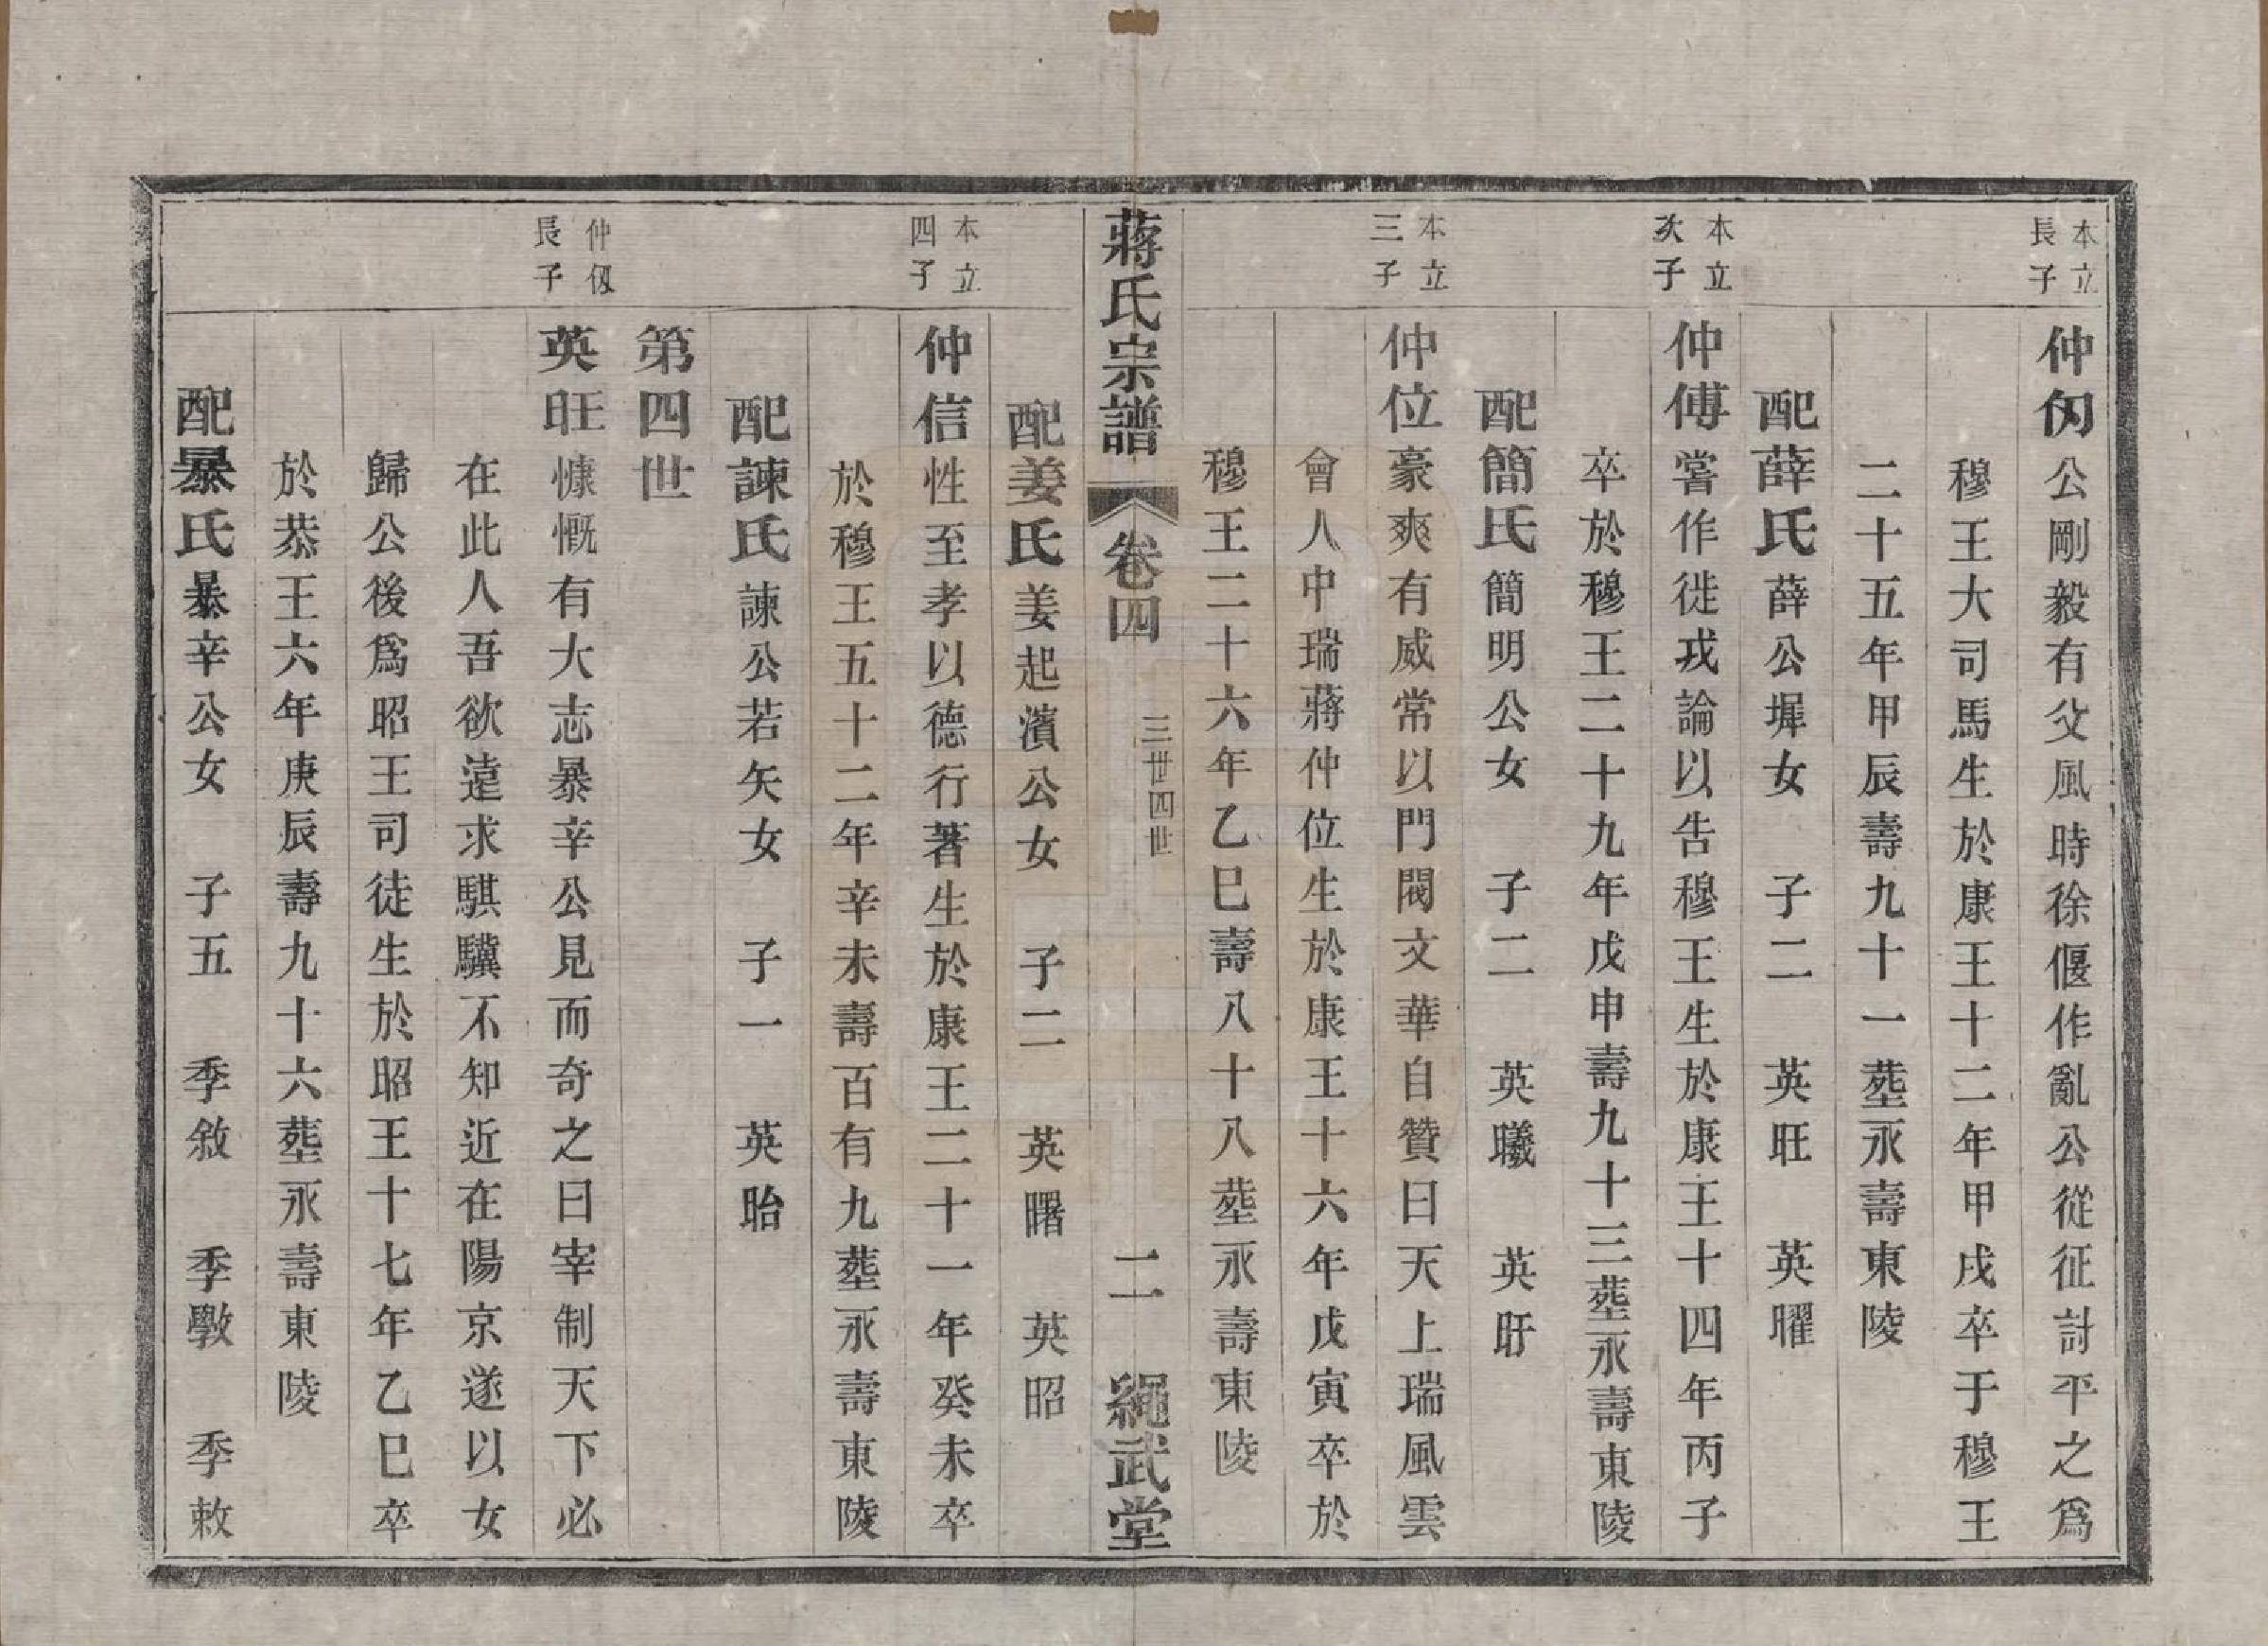 本立
長子
仲仭公剛毅有父風時徐偃作亂公從征討平之爲
穆王大司馬生於康王十二年甲戌卒于穆王
二十五年甲辰壽九十一塟永壽東陵
配薛氏薛公墀女 子二 英旺 英曜
本立
次子
仲傅嘗作徙戎論以告穆王生於康王十四年丙子
卒於穆王二十九年戊申壽九十三塟永壽東陵
配簡氏簡明公女 子二 英曦 英盱
本立
三子
仲位豪爽有威常以門閥文華自贊曰天上瑞風雲
會人中瑞蔣仲位生於康王十六年戊寅卒於
穆王二十六年乙巳壽八十八塟永壽東陵
蔣氏宗譜 卷四 三世四世 二 繩武堂
配姜氏姜起濱公女 子二 英曙 英昭
本立
四子
仲信性至孝以德行著生於康王二十一年癸未卒
於穆王五十二年辛未壽百有九塟永壽東陵
配諫氏諫公若矢女 子一 英眙
第四世
仲仭
長子
英旺慷慨有大志暴辛公見而奇之曰宰制天下必
在此人吾欲遠求騏驥不知近在陽京遂以女
歸公後爲昭王司徒生於昭王十七年乙巳卒
於恭王六年庚辰壽九十六塟永壽東陵
配暴氏暴辛公女 子五 季敘 季斆 季敕